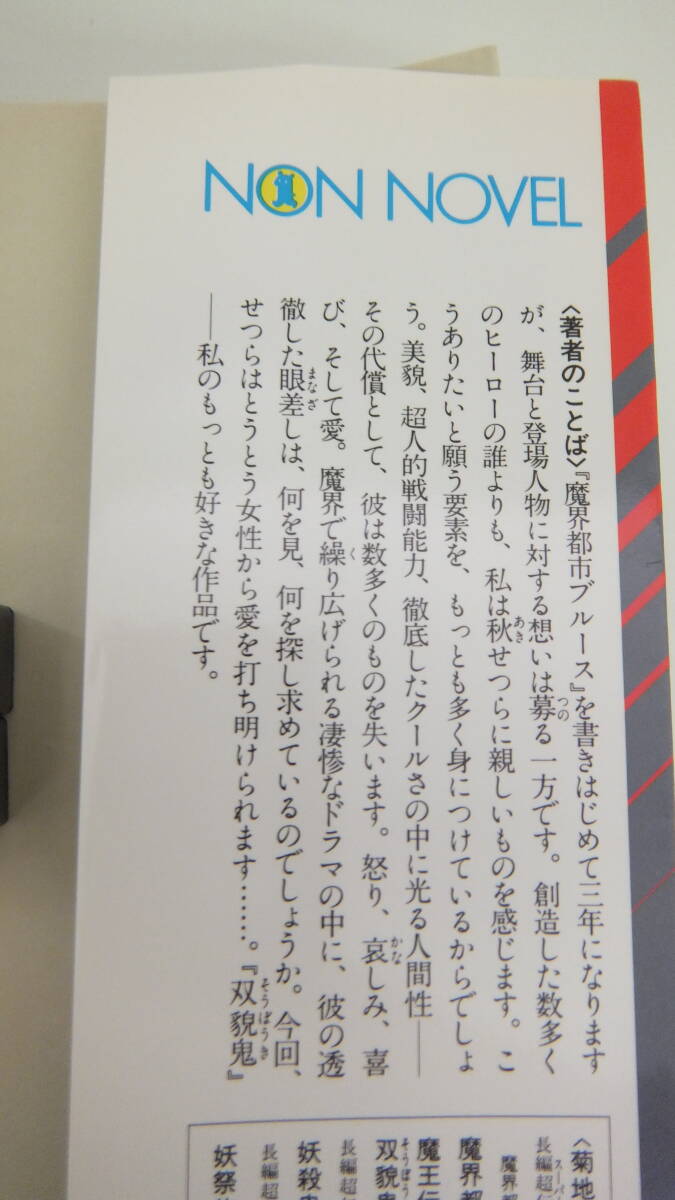 NON NOVEL
〈著者のことば〉『魔界都市ブルース』を書きはじめて三年になります
が、舞台と登場人物に対する想いは募る一方です。創造した数多く
のヒーローの誰よりも、私は秋せつらに親しいものを感じます。こ
うありたいと願う要素を、もっとも多く身につけているからでしょ
う。美貌、超人的戦闘能力、徹底したクールさの中に光る人間性――
その代償として、彼は数多くのものを失います。怒り、哀しみ、喜
び、そして愛。魔界で繰り広げられる凄惨なドラマの中に、彼の透
徹した眼差しは、何を見、何を探し求めているのでしょうか。今回、
せつらはとうとう女性から愛を打ち明けられます……。『双貌鬼』
――私のもっとも好きな作品です。
〈菊地
長編超
魔界
魔界都
魔王伝
双貌鬼
長編超
妖殺
長編超
妖祭